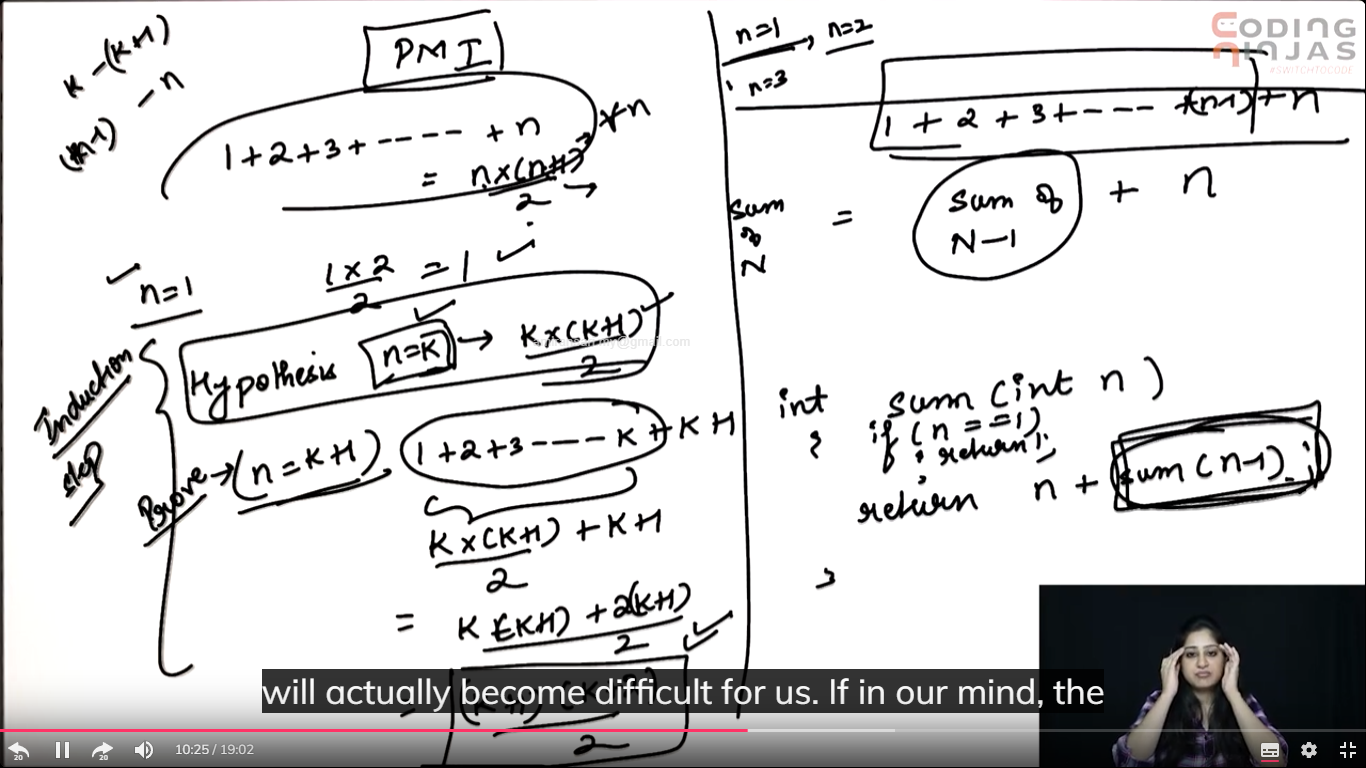 K - (K+1)
(n-1) - n
PMI
1+2+3+---- + n + n
= n×(n+1)
2
n=1
1×2 = 1
2
Induction
step
Hypothesis n=K → K×(K+1)
2
Prove → (n=K+1) 1+2+3----K+K+1
K×(K+1) + K+1
2
= K(K+1) + 2(K+1)
2
=
2
n=1 → n=2
n=3
1 + 2 + 3 + ---- +(n-1) + n
sum of N = sum of N-1 + n
int sum (int n)
{ if (n == 1)
{ return 1;
}
return n + sum(n-1);
}
CODING
NINJAS
#SWITCHTOCODE
will actually become difficult for us. If in our mind, the
20
20
10:25 / 19:02